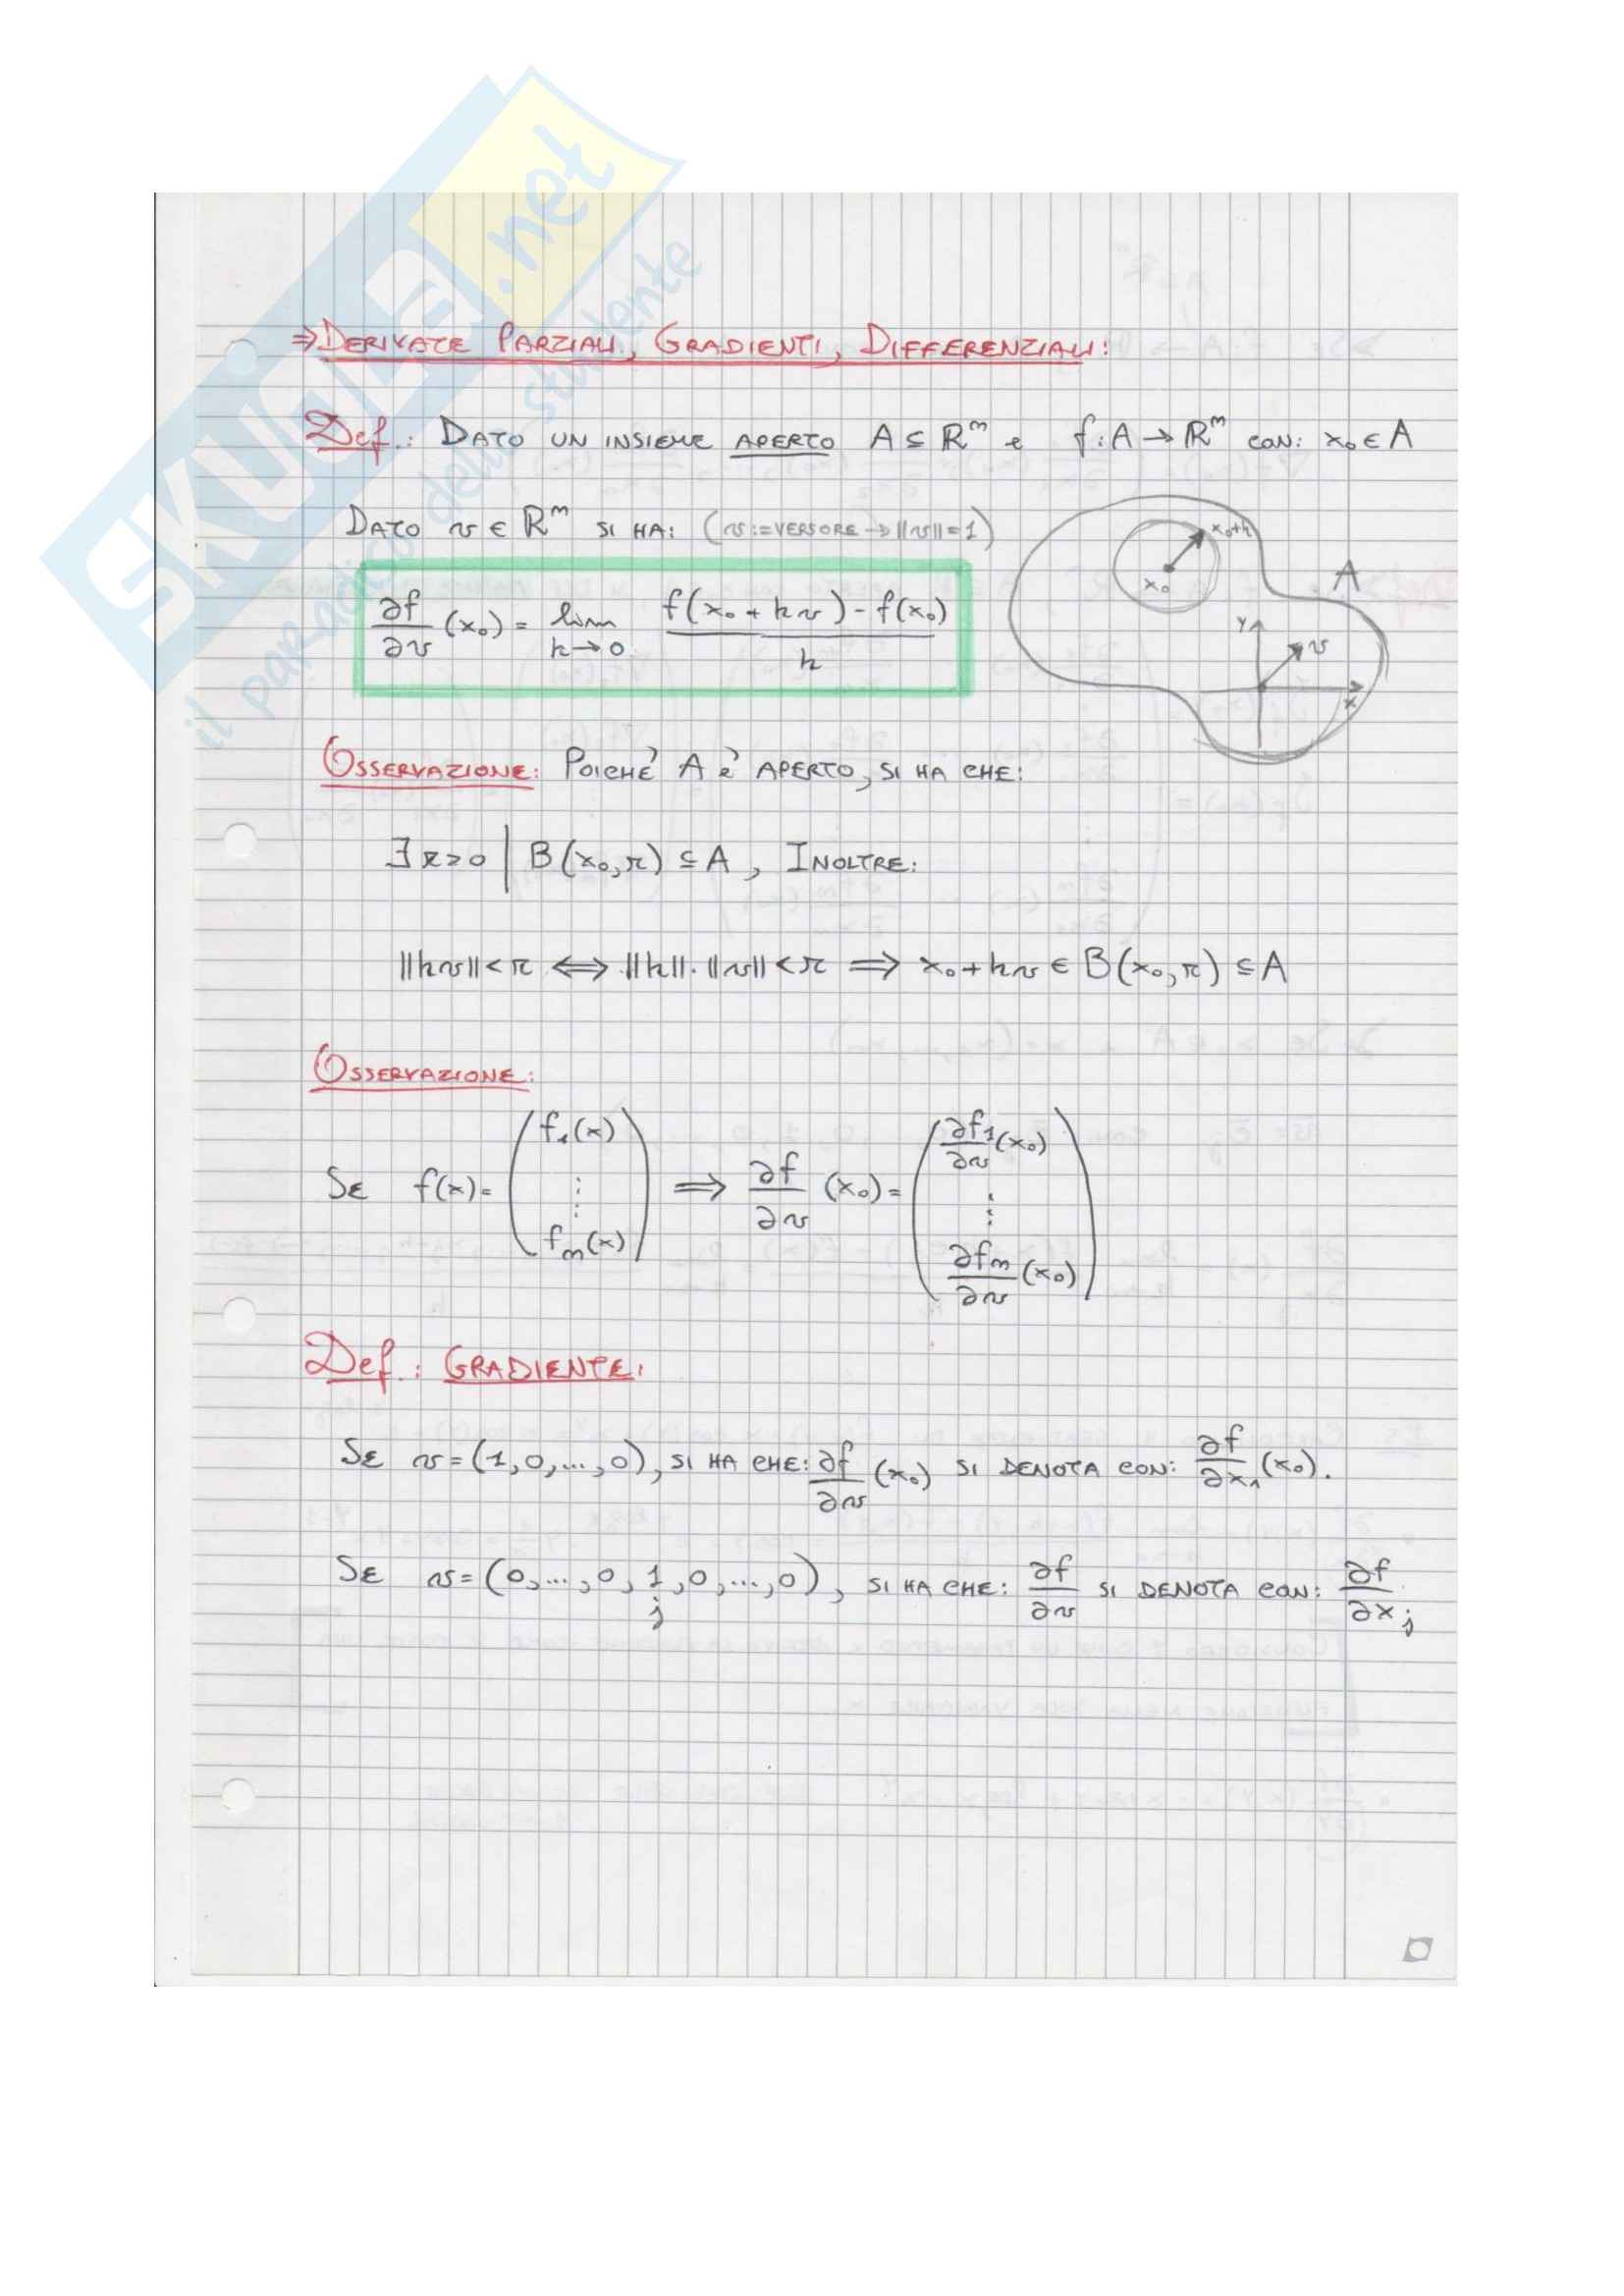 SKUOLA.net
il paradiso dello studente
⇒ DERIVATE PARZIALI, GRADIENTI, DIFFERENZIALI:
Def.: DATO UN INSIEME APERTO A ⊆ ℝᵐ e f: A → ℝᵐ CON: x₀ ∈ A
DATO v ∈ ℝᵐ SI HA: (v := VERSORE → ||v|| = 1)
∂f/∂v (x₀) = lim h→0 f(x₀ + hv) - f(x₀) / h
x₀+h
x₀
A
y
v
x
OSSERVAZIONE: POICHÉ A È APERTO, SI HA CHE:
∃ r>0 | B(x₀, r) ⊆ A, INOLTRE:
||hv|| < r ⟺ ||h|| · ||v|| < r ⟹ x₀ + hv ∈ B(x₀, r) ⊆ A
OSSERVAZIONE:
SE f(x) = (f₁(x) ⋮ fₘ(x)) ⟹ ∂f/∂v (x₀) = (∂f₁/∂v (x₀) ⋮ ∂fₘ/∂v (x₀))
Def.: GRADIENTE:
SE v = (1, 0, ..., 0), SI HA CHE: ∂f/∂v (x₀) SI DENOTA CON: ∂f/∂x₁ (x₀).
SE v = (0, ..., 0, 1, 0, ..., 0), SI HA CHE: ∂f/∂v SI DENOTA CON: ∂f/∂xⱼ
j